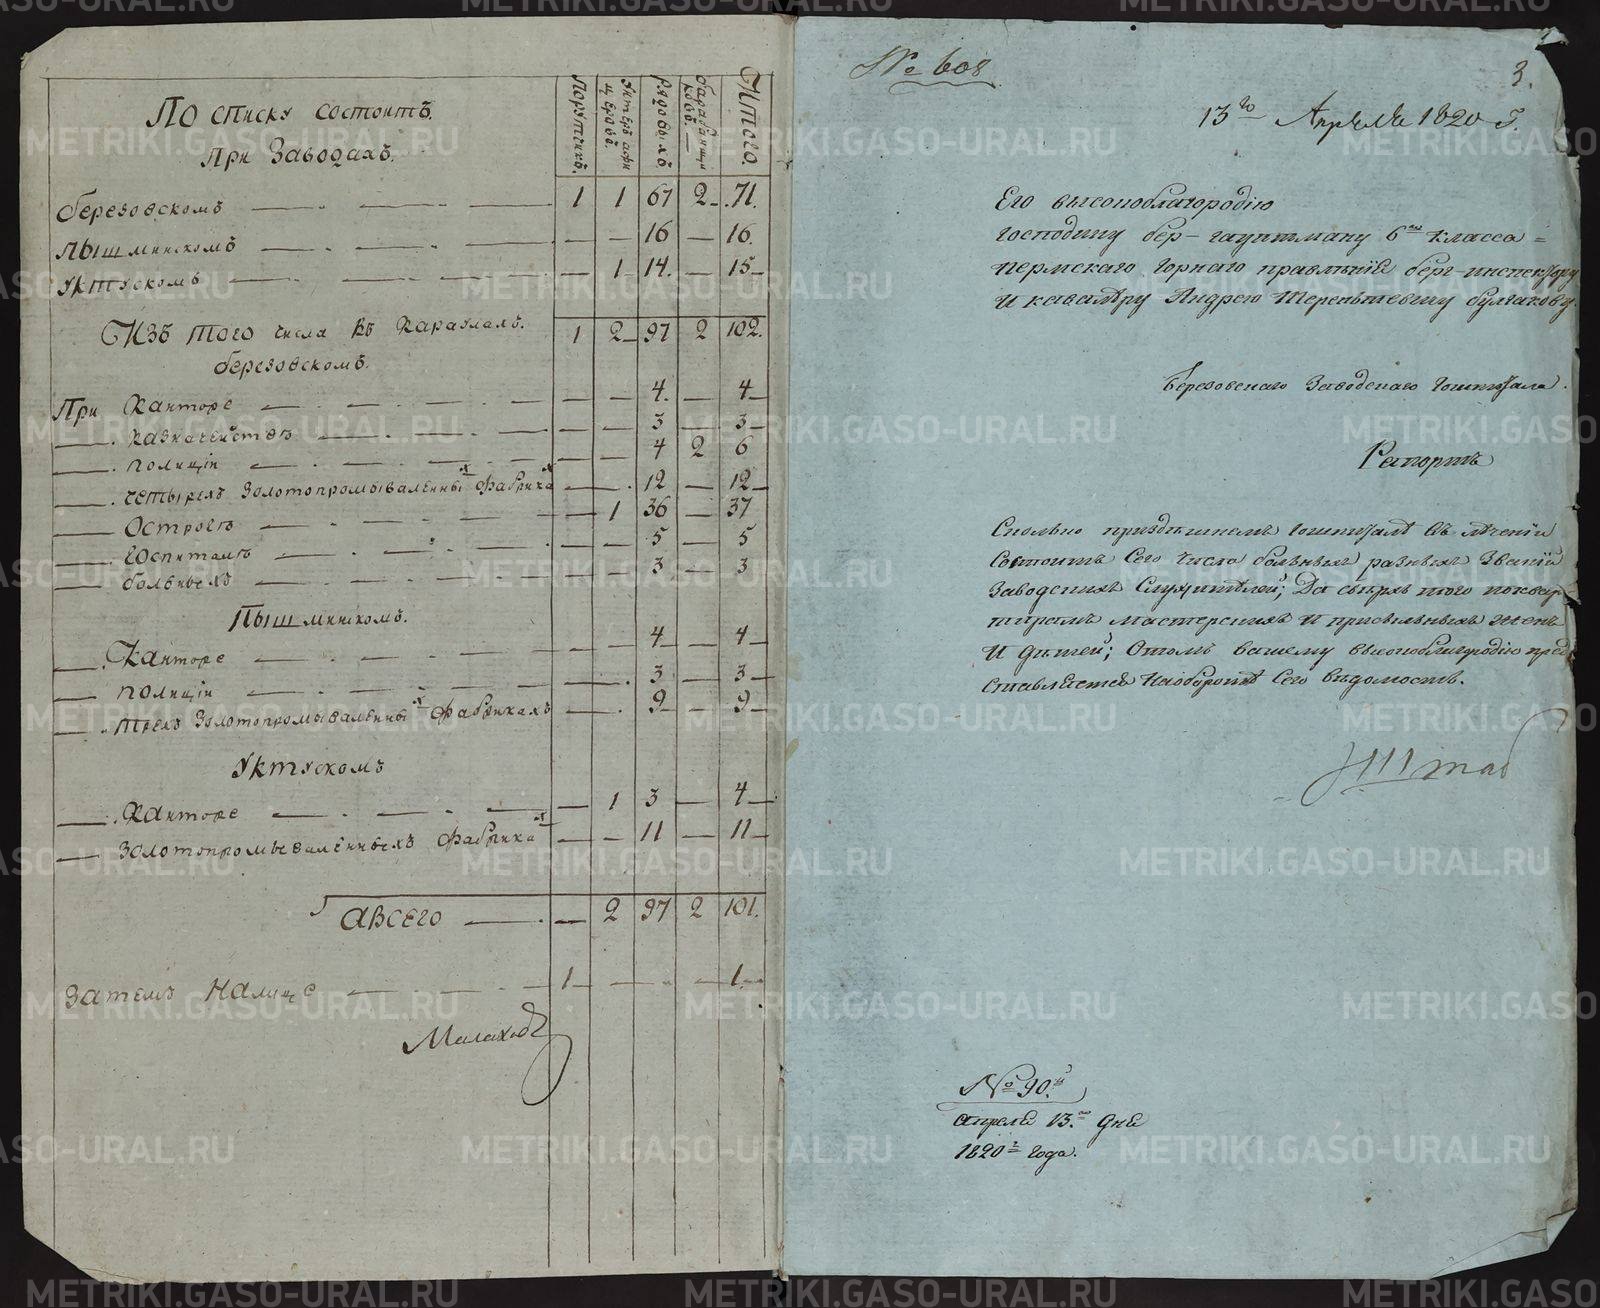 По списку состоитъ.
При Заводахъ.
Порутчикъ.
Унтеръ офицеровъ.
Рядовыхъ
барабанщиковъ.
Итого.
березовскомъ 1 1 67 2 71.
пышминскомъ — — 16 — 16.
уктускомъ — 1 14. — 15
Изъ того числа въ караулахъ. 1 2 97 2 102.
березовскомъ.
При Канторе — — 4. — 4
казначействѣ — — 3 — 3
полиціи — — 4 2 6
четырехъ золотопромываленны х фабрика х — — 12 — 12
Острогѣ — 1 36 — 37
госпиталѣ — — 5 — 5
больныхъ — — 3 — 3
Пышминскомъ.
Канторе — — 4 — 4
полиціи — — 3 — 3
трехъ золотопромываленны х фабрикахъ — — 9 — 9
Уктускомъ
Канторе — 1 3 — 4
золотопромываленныхъ фабрика х — — 11 — 11
а всего — 2 97 2 101.
затемъ налице 1 — — — 1.
Малаховъ
№ 608
3.
13го Апреля 1820 г.
Его высокоблагородію
господину бер-гауптману 6го класса =
пермскаго горнаго правленія берг-инспектору
и кавалеру Андрею Терентьевичу булгакову
Березовскаго Заводскаго гошпиталя.
Рапортъ
Сколько приздешнемъ гошпиталѣ въ лѣченіи
Состоитъ Сего числа больныхъ разныхъ званіи
Заводскихъ Служителей; Да свѣрхъ того поквар
тирамъ мастерскихъ и присыльныхъ женъ
И дѣтей; Отомъ вашему высокоблагородію пред
ставляется Наоборотѣ Сего вѣдомость.
№ 90.й
апреля 13.го дня
1820го года.
METRIKI.GASO-URAL.RU